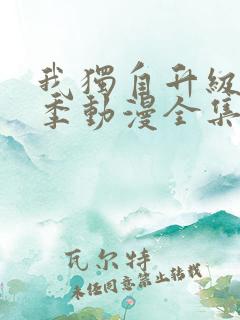 我獨自升級
季動漫全集
瓦尔特
未经同意禁止转载